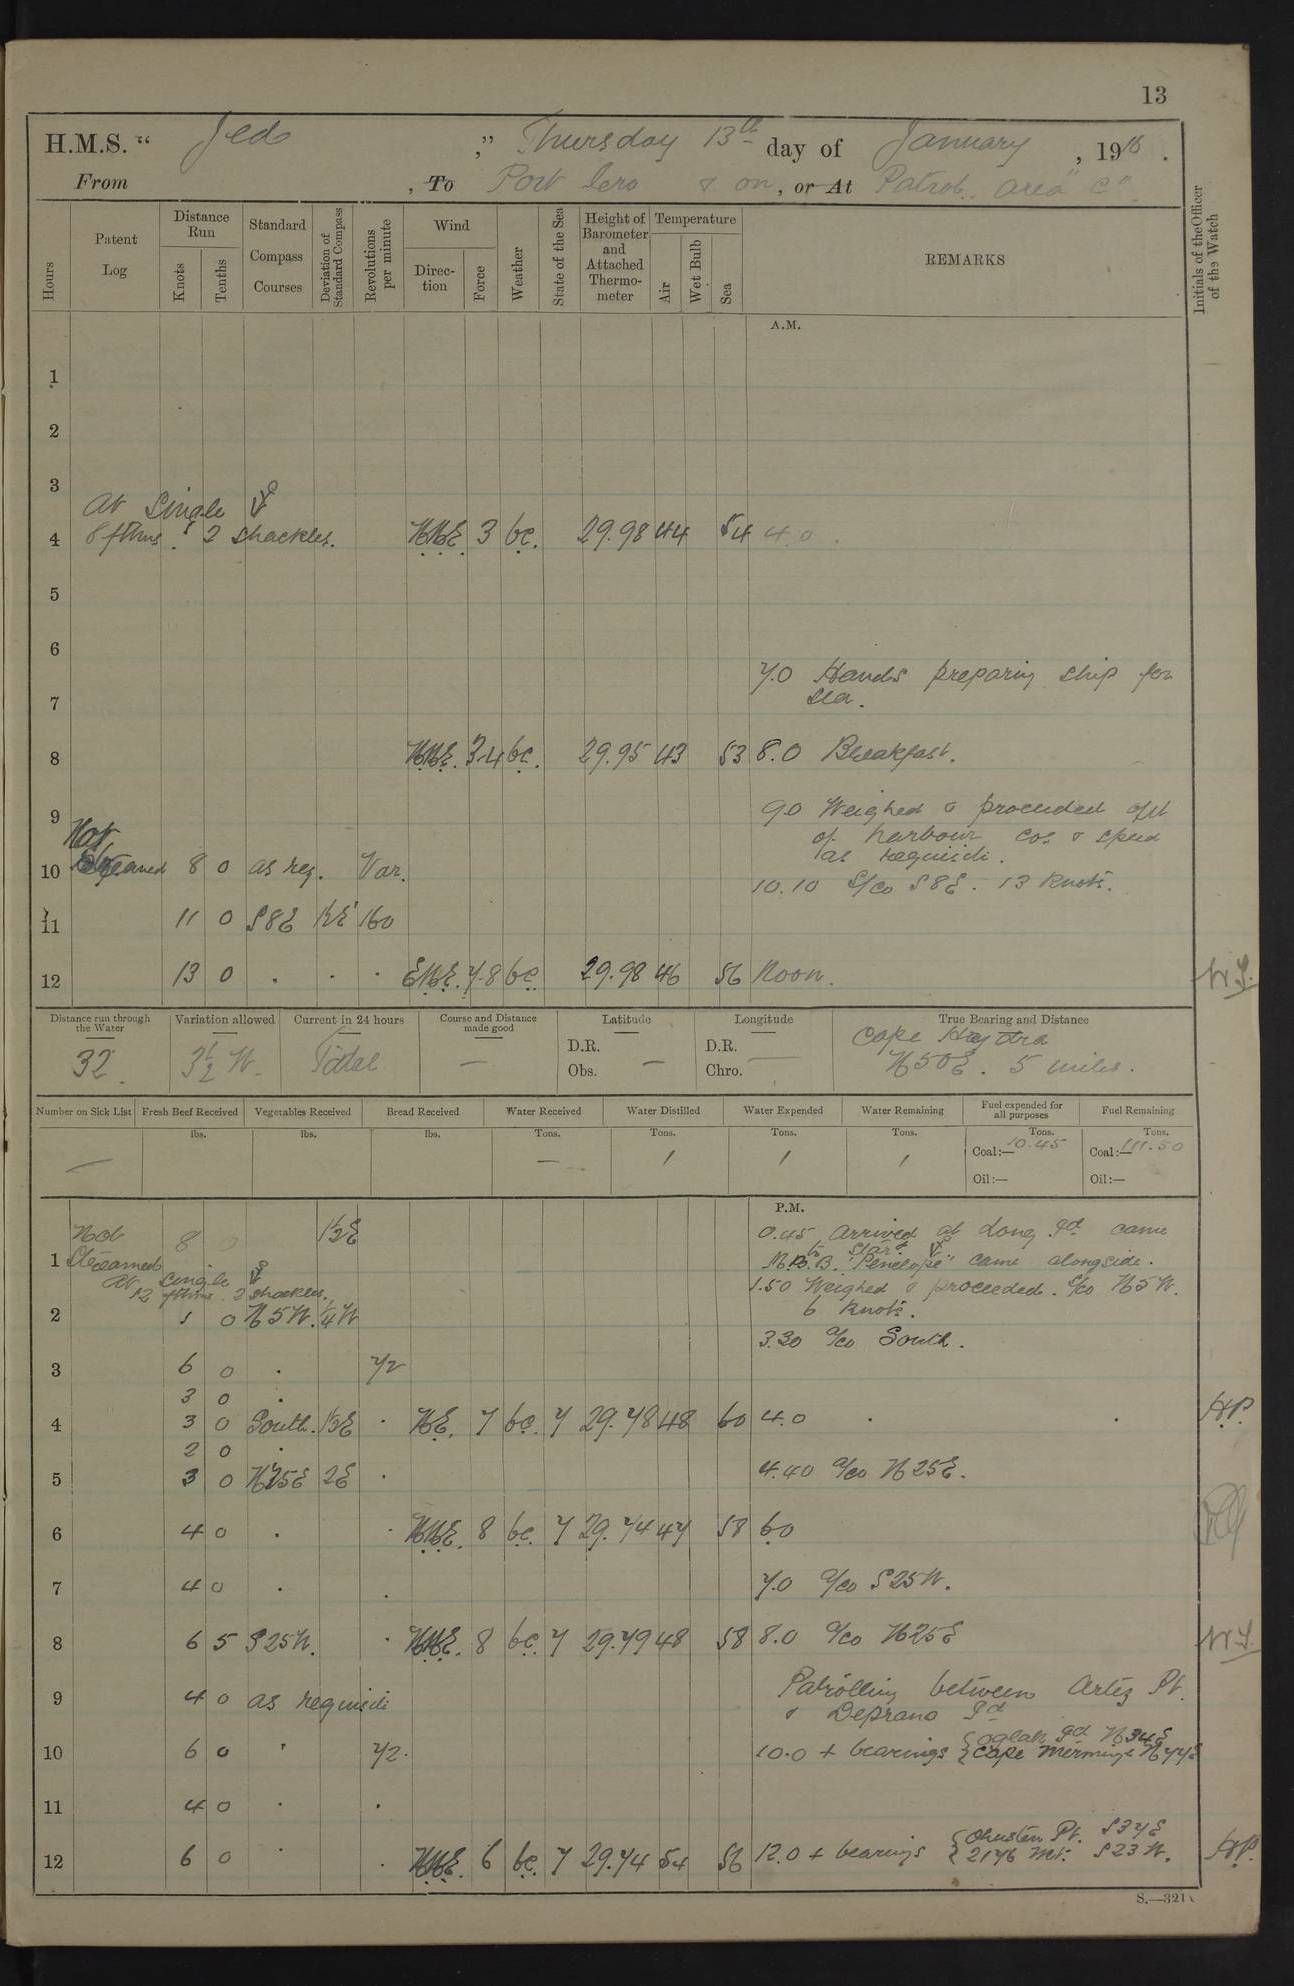 13
H.M.S. “ Jed ,” Thursday 13th day of January , 1916 .
From , To Port Iero & on , or At Patrol area "C"
Hours
Patent Log
Distance Run
Knots
Tenths
Standard Compass Courses
Deviation of Standard Compass
Revolutions per minute
Wind
Direction
Force
Weather
State of the Sea
Height of Barometer and Attached Thermometer
Temperature
Air
Wet Bulb
Sea
REMARKS
Initials of the Officer of the Watch
A.M.
1
2
3
At Single
4 8 fthms. 2 shackles. NNE 3 bc. 29.98 44 54 4.0
5
6
7.0 Hands preparing ship for
7 sea.
8 NNE. 3-4 bc. 29.95 43 53 8.0 Breakfast.
9 9.0 Weighed & proceeded out
Not of harbour cos & speed
as requisite.
10 Streamed 8 0 as req. Var.
10.10 S/co S8E. 13 knots.
11 11 0 S8E ½E 160
12 13 0 . . . ENE. 7-8 bc 29.98 46 56 Noon. WS.
Distance run through the Water
Variation allowed
Current in 24 hours
Course and Distance made good
Latitude
Longitude
True Bearing and Distance
32. 3½ W. Tidal — D.R. Obs. — D.R. Chro. — Cape
N50E. 5 miles.
Number on Sick List
Fresh Beef Received
Vegetables Received
Bread Received
Water Received
Water Distilled
Water Expended
Water Remaining
Fuel expended for all purposes
Fuel Remaining
lbs. lbs. lbs. Tons. Tons. Tons. Tons. Tons. Tons.
— — / / / Coal:— 10.45 Coal:— 111.50
Oil:— Oil:—
P.M.
Not 8 0 1½E 0.45 Arrived at Long Id. came
1 Streamed to Starbd M.B. "Penelope" came alongside.
At Single
12 fthms. 2 shackles. 1.50 Weighed & proceeded. S/co N5W.
2 1 0 N5W. ¼W 6 knots.
3.30 a/co South.
3 6 0 . 72
3 0 .
4 3 0 South. 1½E . NE. 7 bc. 7 29.78 48 60 4.0 . . HP.
2 0 .
5 3 0 N25E 2E . 4.40 a/co N25E.
6 4 0 . . NNE. 8 bc. 7 29.74 47 58 6.0
7 4 0 . . 7.0 a/co S25W.
8 6 5 S25W. . NNE. 8 bc. 7 29.79 48 58 8.0 a/co N25E WS.
9 4 0 as requisite Patrolling between Artez Pt.
& Deprano Id
10 6 0 " 72. 10.0 + bearings { Oglak Id N34E
Cape N77E
11 4 0 . .
12 6 0 . . NNE. 6 bc. 7 29.74 54 56 12.0 + bearings { Pt. S37E
2176 Mt. S23W. HP.
S.—321